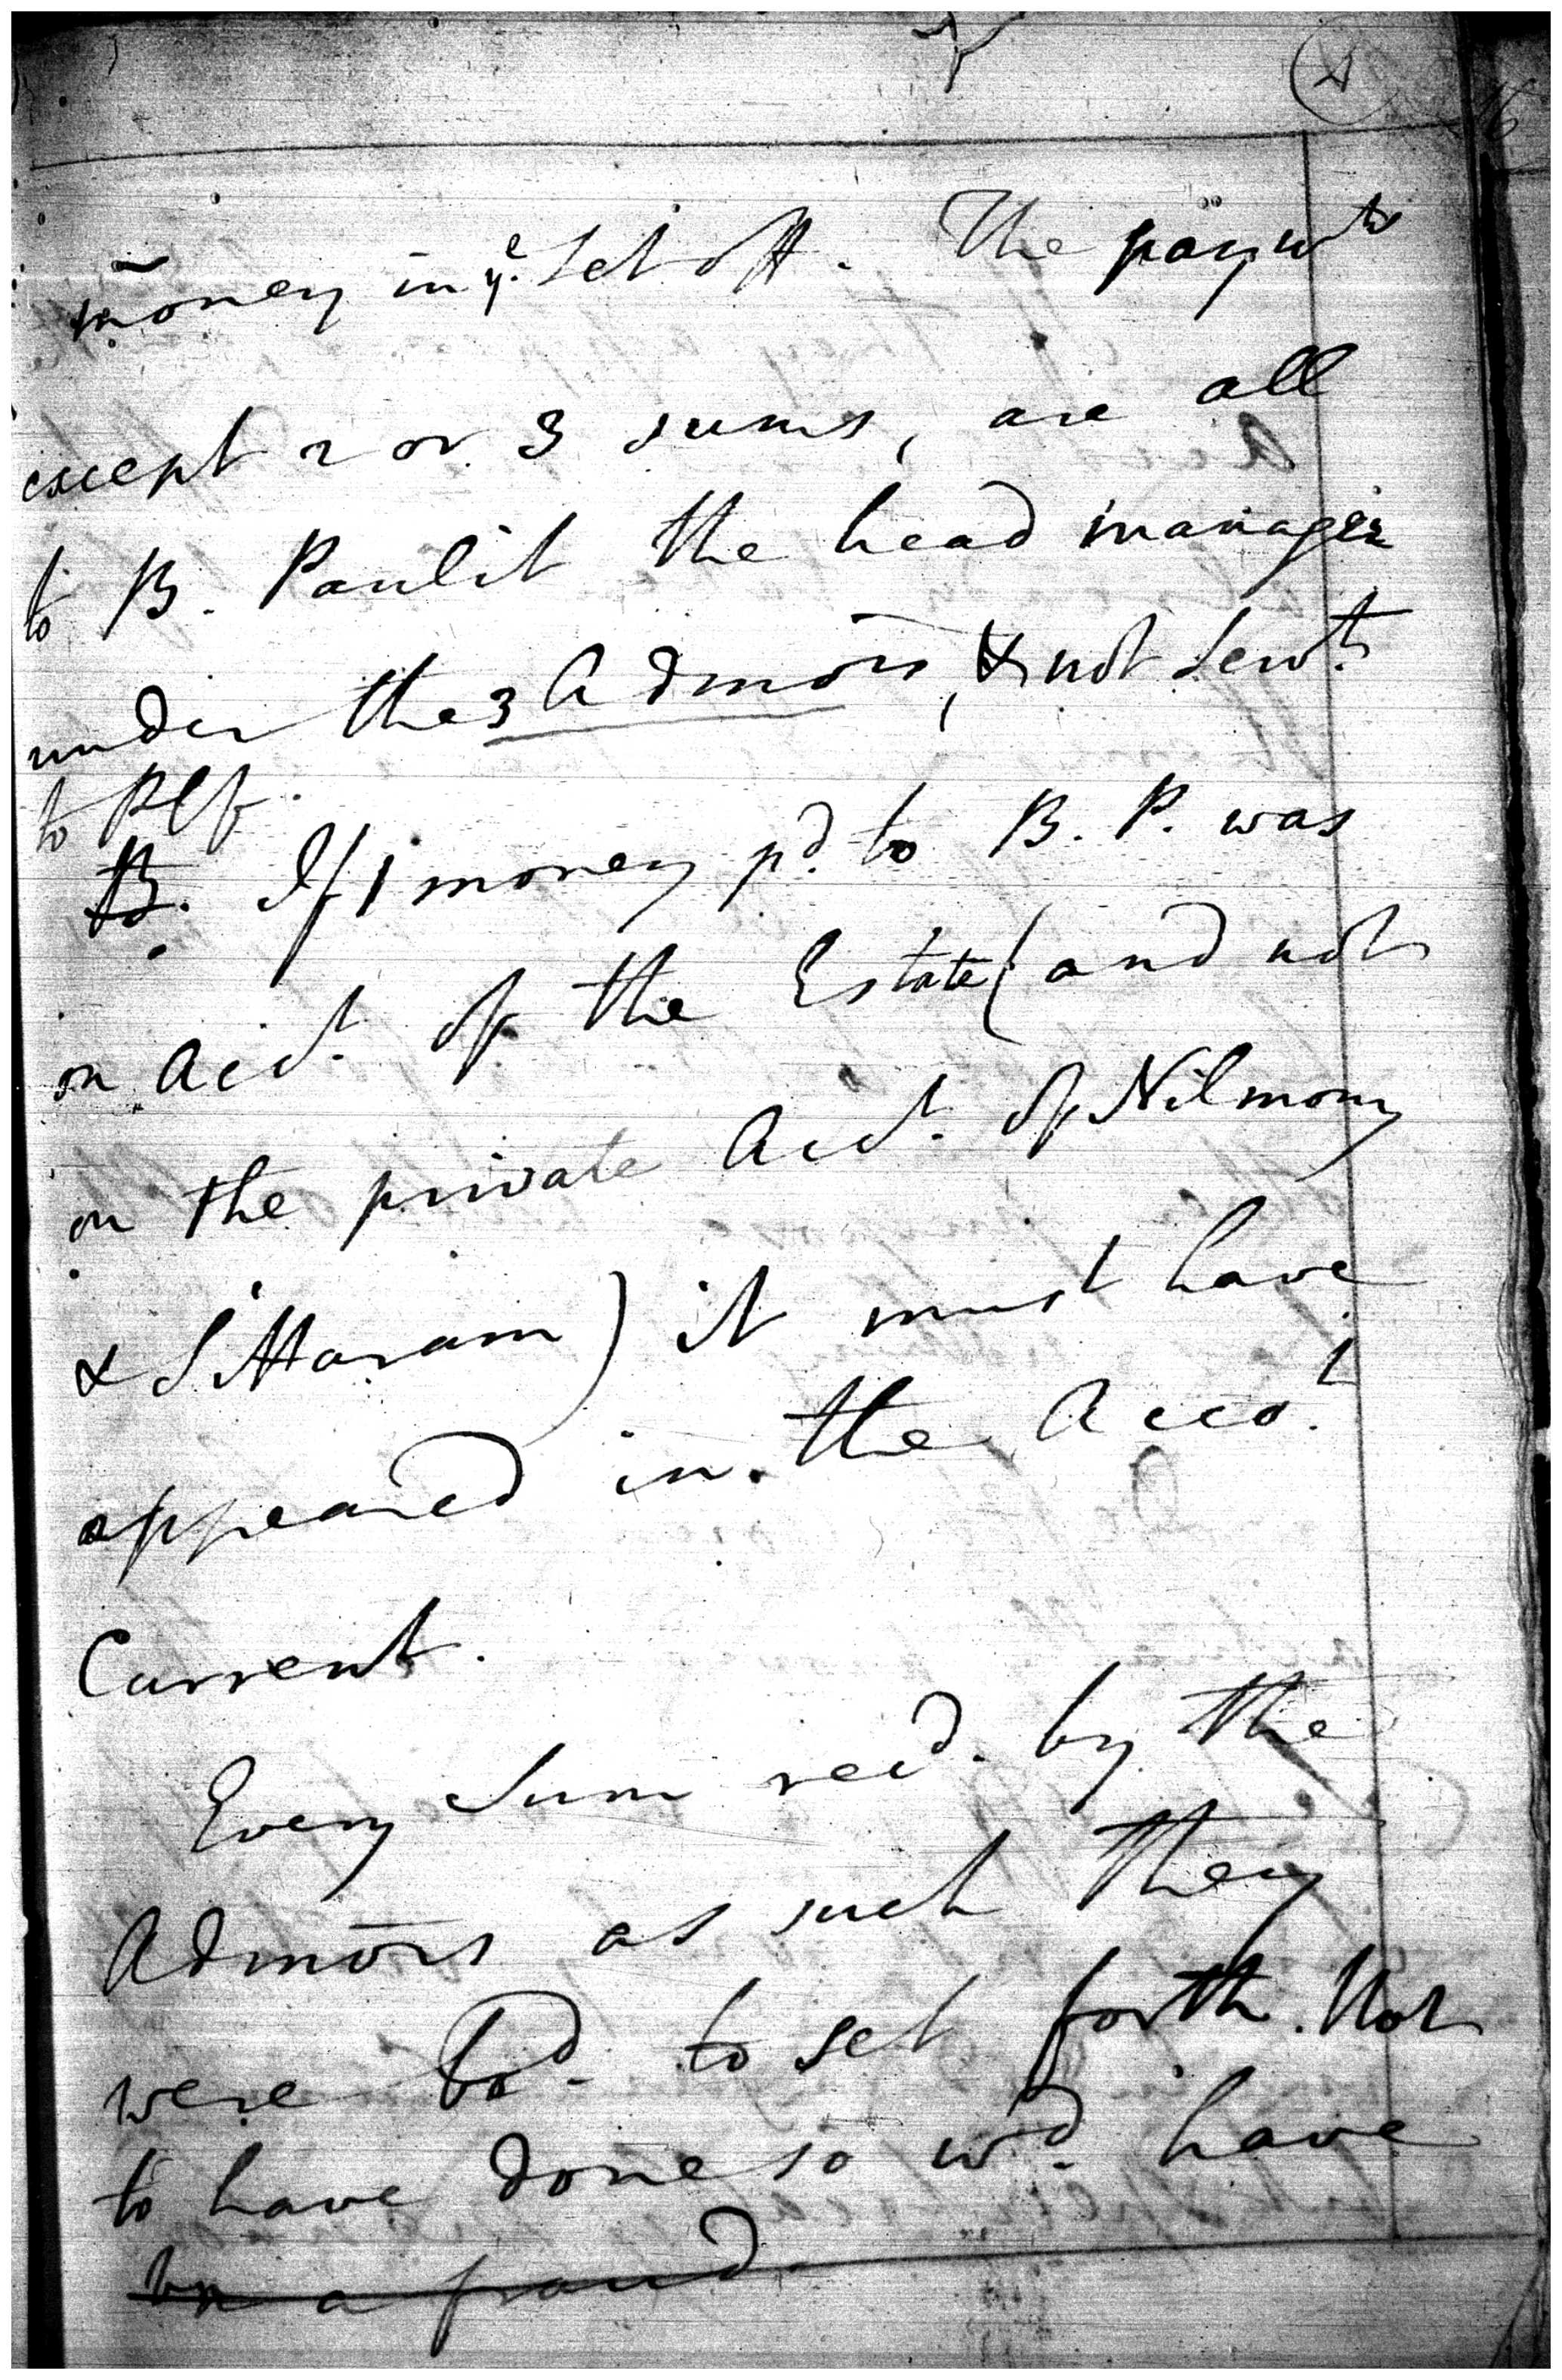 (4)
money in yᵉ set off. The paymts
except 2 or 3 sums, are all
to B. Paulit the head manager
under the 3 Admors, & not sent
to Plf.
If money pd. to B. P. was
on Acct. of the Estate (and not
on the private Acct. of Nilmony
& Sittaram) it must have
appeared in the Accot.
Current.
Every Sum recd. by the
Admors as such they
were bod. to set forth. Not
to have done so wd. have
bn a fraud